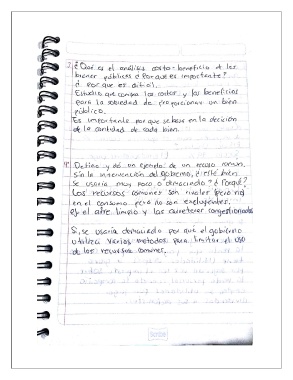 3. ¿Qué es el análisis costo-beneficio de los
bienes públicos? ¿Por qué es importante?
¿Por qué es difícil?
Estudio que compara los costos y los beneficios
para la sociedad de proporcionar un bien
público.
Es importante por que se basa en la decición
de la cantidad de cada bien.
4. Defina y dé un ejemplo de un recurso común.
Sin la intervención del gobierno, ¿este bien
se usaría muy poco o demaciado? ¿Porqué?
Los recursos comunes son rivales pero no
en el consumo pero no son excluyentes.
ej el aire limpio y las carreteras congestionadas
Si, se usaría demaciado por que el gobierno
utiliza varios metodos para limitar el uso
de los recursos comunes.